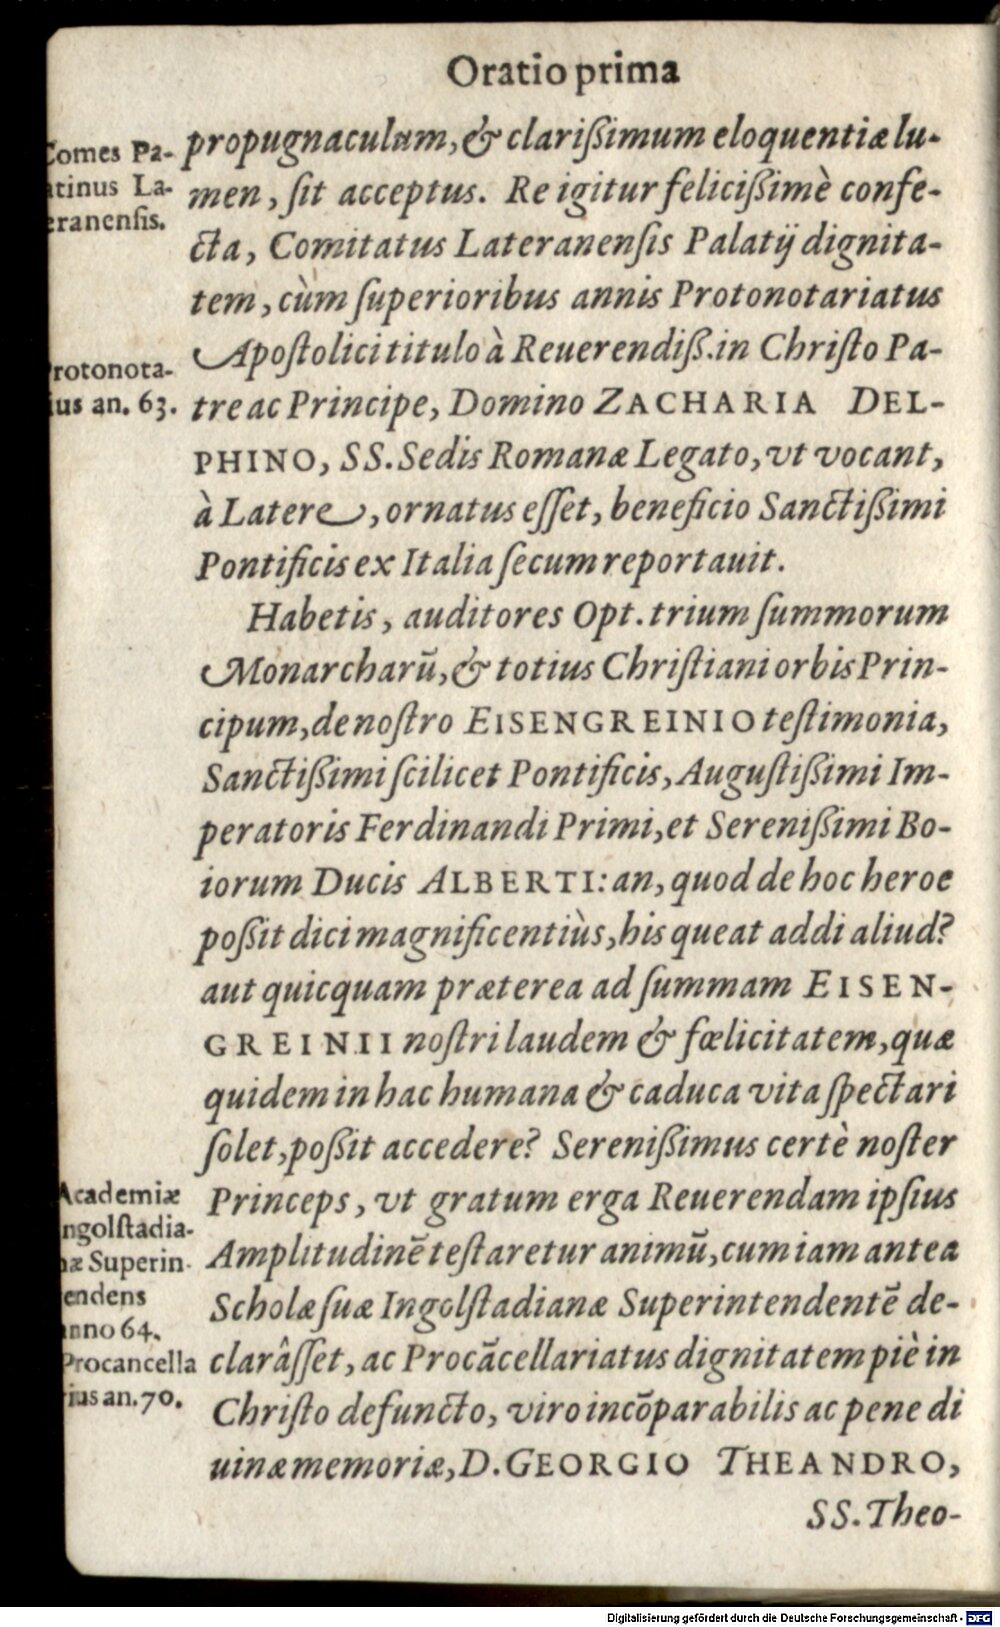 Oratio prima
Comes Pa-
atinus La-
eranensis.
propugnaculum, & clarißimum eloquentiæ lu-
men, sit acceptus. Re igitur felicißimè confe-
cta, Comitatus Lateranensis Palatij dignita-
tem, cùm superioribus annis Protonotariatus
Apostolici titulo à Reuerendiß. in Christo Pa-
rotonota-
ius an. 63.
tre ac Principe, Domino ZACHARIA DEL-
PHINO, SS. Sedis Romanæ Legato, vt vocant,
à Latere, ornatus esset, beneficio Sanctißimi
Pontificis ex Italia secum reportauit.
Habetis, auditores Opt. trium summorum
Monarcharū, & totius Christiani orbis Prin-
cipum, de nostro EISENGREINIO testimonia,
Sanctißimi scilicet Pontificis, Augustißimi Im-
peratoris Ferdinandi Primi, et Serenißimi Bo-
iorum Ducis ALBERTI: an, quod de hoc heroe
poßit dici magnificentiùs, his queat addi aliud?
aut quicquam præterea ad summam EISEN-
GREINII nostri laudem & fœlicitatem, quæ
quidem in hac humana & caduca vita spectari
solet, poßit accedere? Serenißimus certè noster
Academiæ
ngolstadia-
næ Superin-
endens
anno 64.
Procancella
rius an. 70.
Princeps, vt gratum erga Reuerendam ipsius
Amplitudinē testaretur animū, cum iam antea
Scholæ suæ Ingolstadianæ Superintendentē de-
clarâsset, ac Procācellariatus dignitatem piè in
Christo defuncto, viro incōparabilis ac pene di
uinæ memoriæ, D. GEORGIO THEANDRO,
SS. Theo-
Digitalisierung gefördert durch die Deutsche Forschungsgemeinschaft - DFG